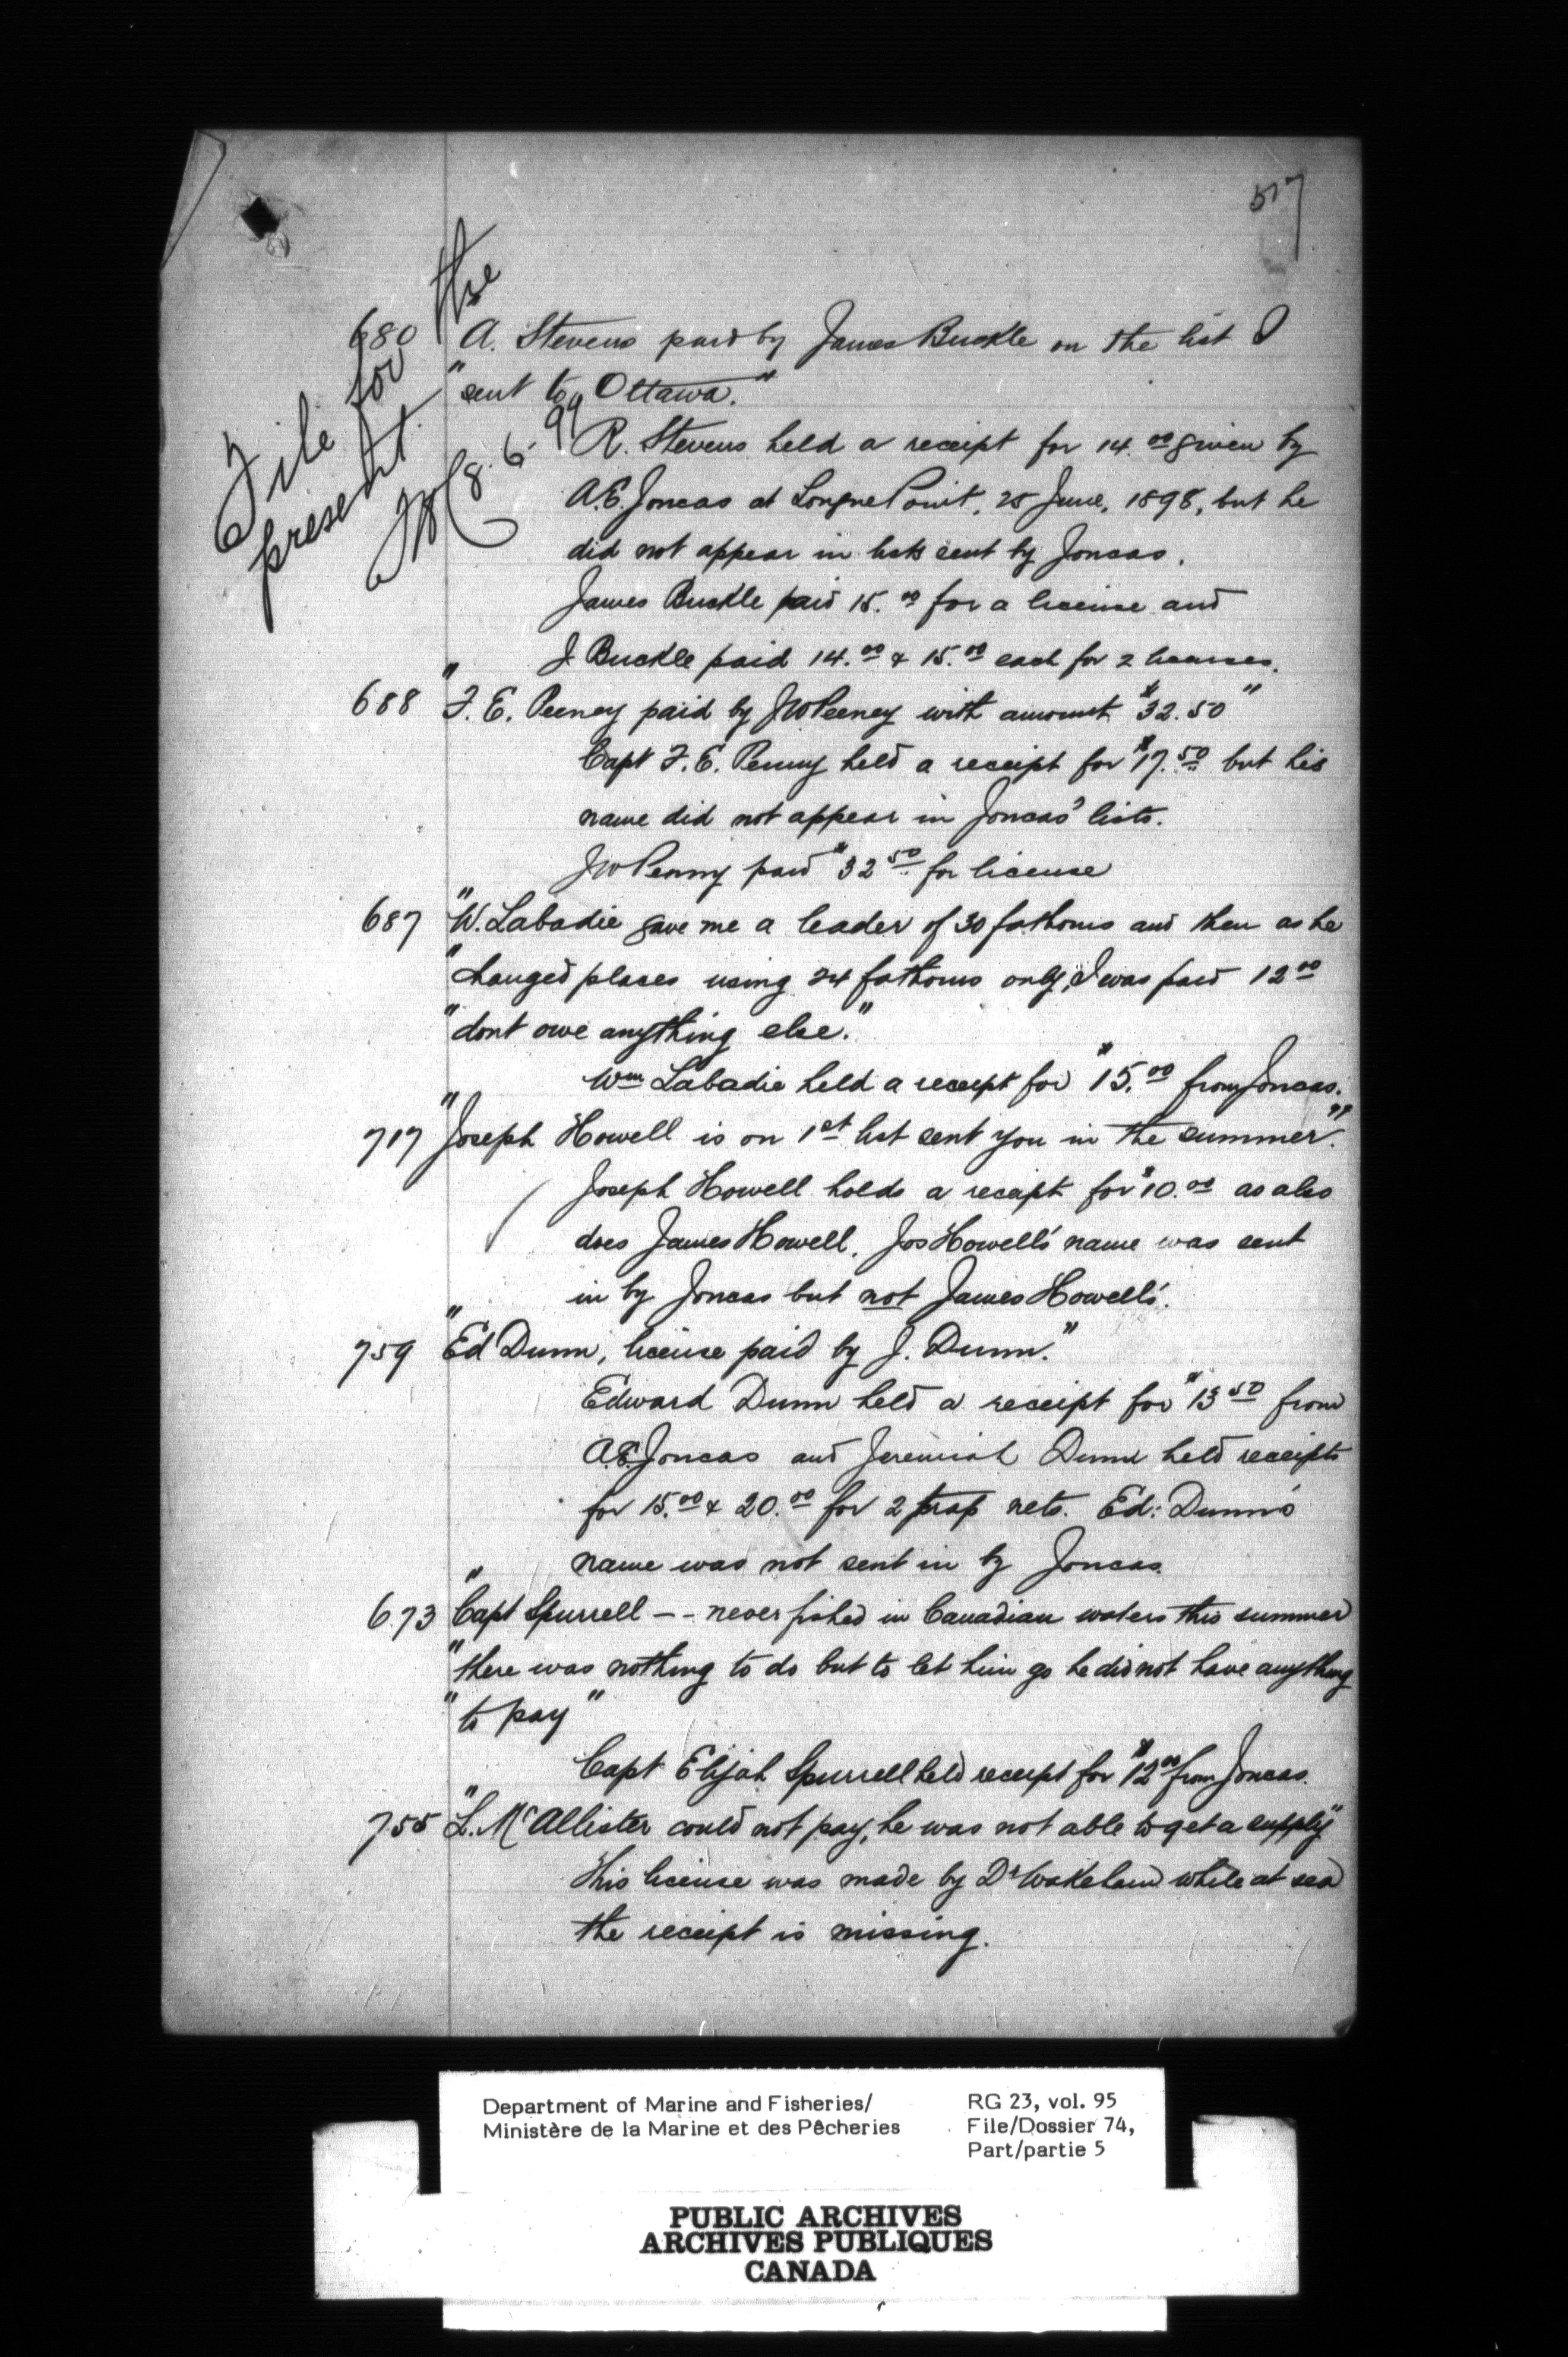 517
File for the
present
8.6.99
680 A. Stevens paid by James Buckle on the list I
"sent to Ottawa."
R. Stevens held a receipt for 14.00 given by
A.E. Joncas at Longue Point, 25 June, 1898, but he
did not appear in lists sent by Joncas.
James Buckle paid 15.00 for a license and
J. Buckle paid 14.00 & 15.00 each for 2 licenses.
688 "F. E. Peeney paid by JW Peeney with amount $32.50"
Capt F. E. Penny held a receipt for $17.50 but his
name did not appear in Joncas' lists.
JW Penny paid $32.50 for license
687 "W. Labadie gave me a leader of 30 fathoms and then as he
"changed places using 24 fathoms only, I was paid 12.00
"dont owe anything else."
Wm Labadie held a receipt for $15.00 from Joncas.
717 "Joseph Howell is on 1st list sent you in the summer."
Joseph Howell holds a receipt for $10.00 as also
does James Howell. Jos Howell's name was sent
in by Joncas but not James Howell's.
759 "Ed Dunn, license paid by J. Dunn."
Edward Dunn held a receipt for $13.50 from
A.E. Joncas and Jeremiah Dunn held receipts
for 15.00 & 20.00 for 2 trap nets. Ed: Dunn's
name was not sent in by Joncas.
673 "Capt Spurrell -- never fished in Canadian waters this summer
"there was nothing to do but to let him go he did not have anything
"to pay"
Capt Elijah Spurrell held receipt for $12.00 from Joncas.
755 "L. McAllister could not pay, he was not able to get a supply"
This license was made by Dr Wakeham while at sea
the receipt is missing.
Department of Marine and Fisheries/
Ministère de la Marine et des Pêcheries
RG 23, vol. 95
File/Dossier 74,
Part/partie 5
PUBLIC ARCHIVES
ARCHIVES PUBLIQUES
CANADA